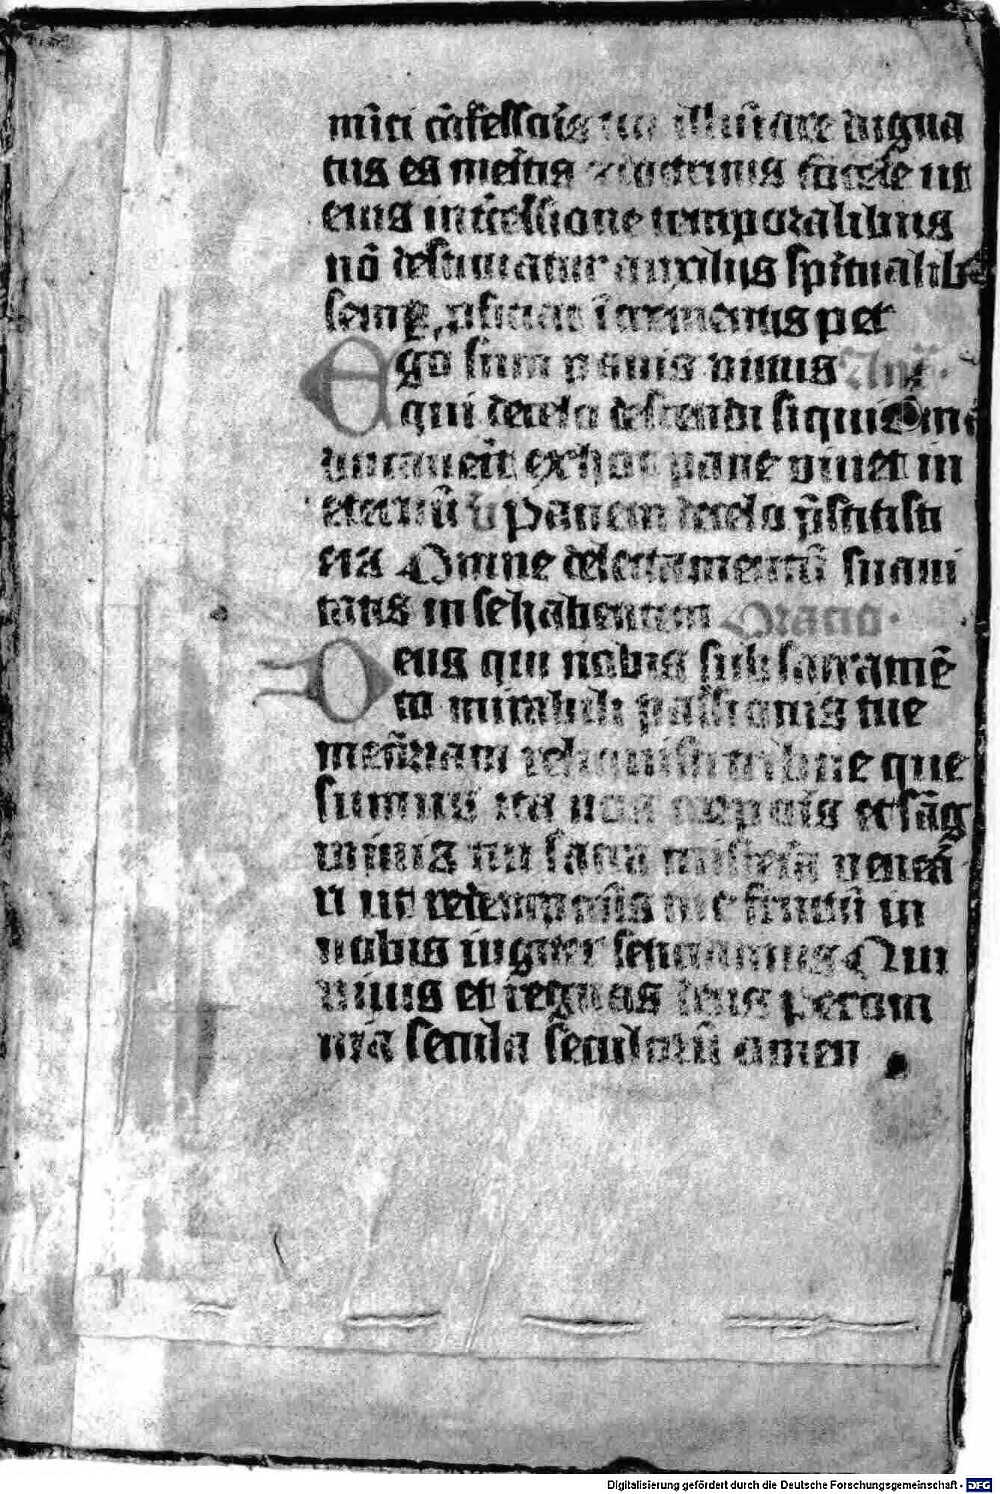 mīci cōfessoris tui illumīare digna
tus es meritis et doctrinis cōcede ut
eius intcessione temporalibus
nō destituatur auxiliis spiritualib
semp proficiat icremētis p et
Ego sum panis vivus Ant.
qui de celo descendi si quis
manducaverit ex hoc pane vivet in
eternū v̄ Panem de celo p̄stitisti
eis Omne delectamentū suavi
tatis in se habentem Oracio.
Deus qui nobis sub sacramē
to mirabili passionis tue
memoriam reliquisti tribue que
sumus ita nos corporis et sāg
vinis tui sacra misteria venerā
ri ut redempcionis tue fructū in
nobis iugiter senciamus Qui
vivis et regnas deus per om
nia secula seculorū amen
Digitalisierung gefördert durch die Deutsche Forschungsgemeinschaft - DFG